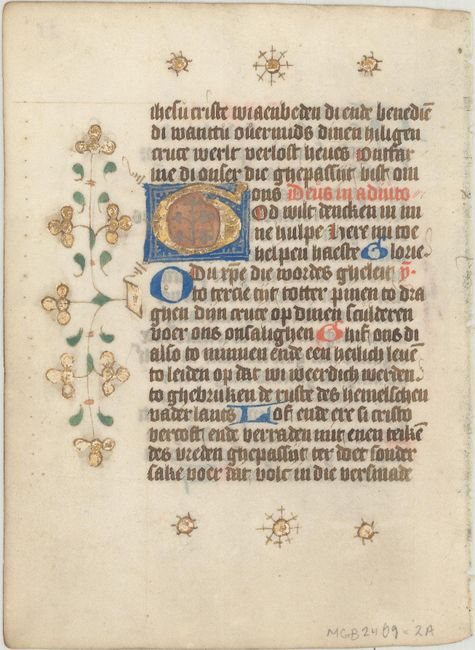 ihesu criste wi aenbeden di ende benediē
di want tu ouermids dinen hiligen
cruce werlt verlost heues Ontfar
me di onser die ghepassijt bist om
ons Deus in adiuto
God wilt dencken in mi
ne hulpe Here mi toe
helpen haeste Glorie
O du xpē die wordes gheleit ꝟ.
to tercie tijt totter pinen to dra
ghen dijn cruce op dinen sculderen
voer ons onsalighen Ghif ons di
also to minnen ende een heilich leuē
to leiden op dat wi weerdich werden
to ghebruken de ruste des hemelschen
vaderlants Lof ende ere si cristo
vercoft ende verraden mit enen teikē
des vreden ghepassijt ter doet sonder
sake voer dat volc in die versmade
MGB2409-2A